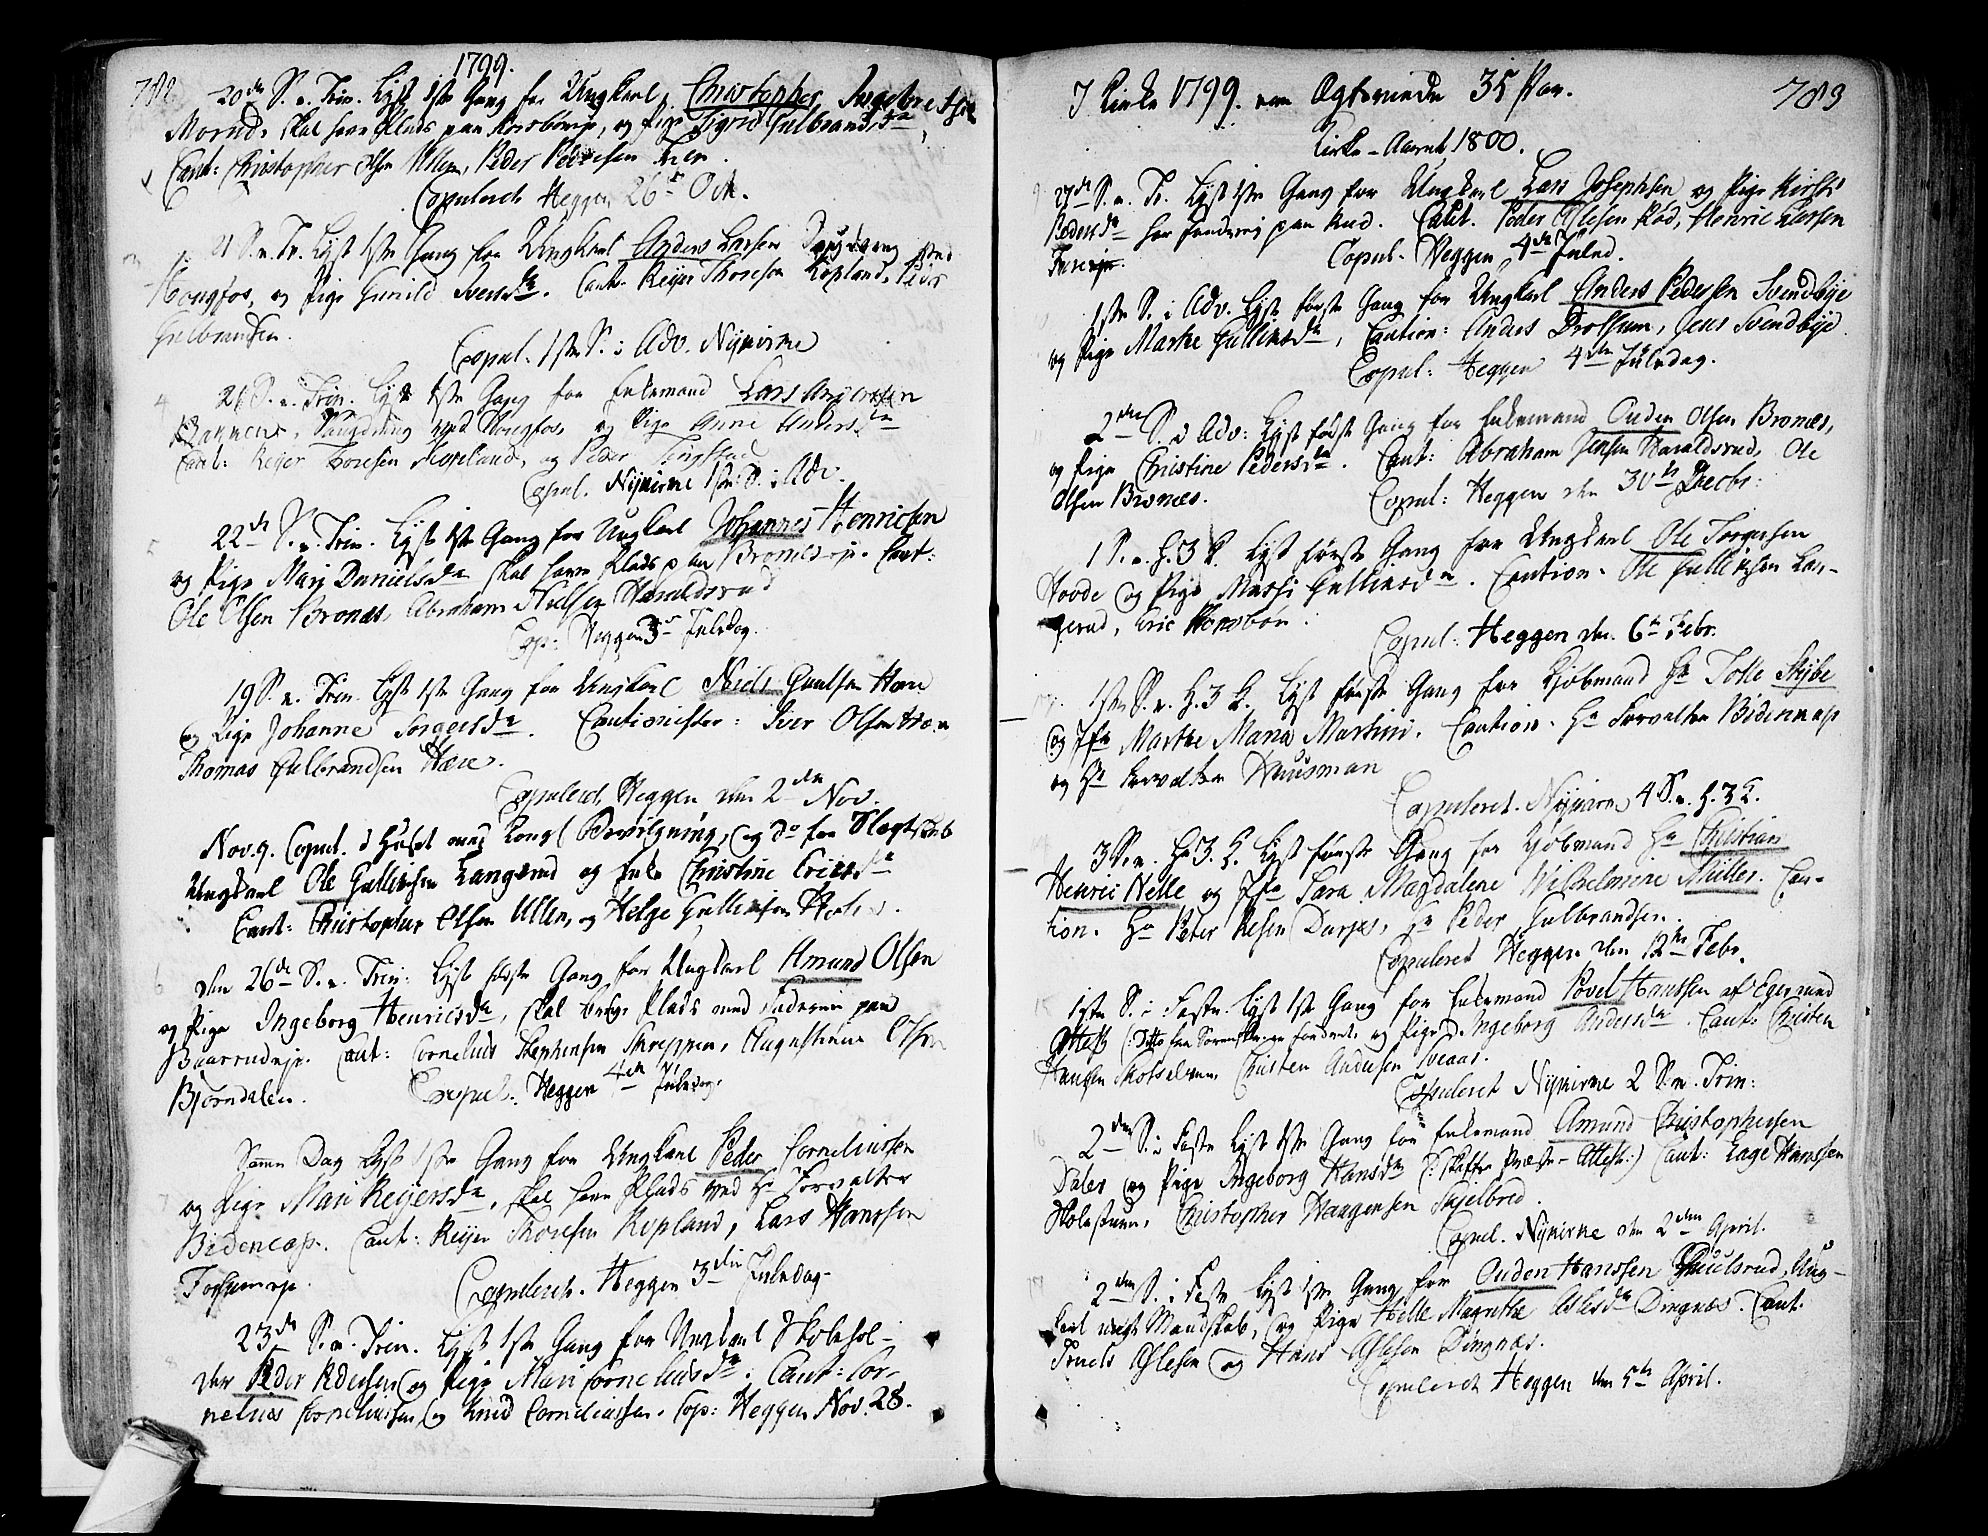 782
1799.
20de S. n. Trin. Lyst 1ste Gang for Ungkarl Christopher Ingebretsen
Moend, skal have Plads paa Korsbøneje, og Pige Sigrid Gulbrandsda,
Caut: Christopher Olsen Ullen, Peder Pedersen Fien.
Copulered Heggen 26de Oct.
21 S. n. Tr. Lyst 1ste Gang for Ungkarl Anders Larsen Saugdreng ved
Hougfos, og Pige Gunild Iversda. Caut. Reyer Thoresen Kopland, Peder
Gulbrandsen.
Copul. 1ste S. i Adv. Nykirke
21 S. n. Trin. Lyst 1ste Gang for Enkemand Lars Andersen
Saugdreng ved Hougfos, og Pige Anne Andersda
Caut: Reyer Thoresen Kopland, og Peder
Copul. Nykirke 1ste S. i Adv.
22de S. n. Trin. Lyst 1ste Gang for Ungkarl Johannes Henricsen
og Pige Mari Danielsda skal have Plads paa Bronæseje. Caut:
Ole Olsen Bronæs, Abraham Nielsen Haraldsrud
Cop: Heggen 3die Juledag.
19 S. n. Trin. Lyst 1ste Gang for Ungkarl Niels Gundsen Hære
og Pige Johanne Torgersda. Cautionister: Iver Olsen Hære
Thomas Gulbrandsen Hære.
Copulered Heggen den 2den Nov.
Nov. 9. Copul. i Huset med Kongl Bevilgning, og do for Slegtskab
Ungkarl Ole Gullichsen Langerud og Enke Christine Ericsda
Caut: Christopher Olsen Ullen, og Helge Gullichsen
den 26de S. n. Trin: Lyst første Gang for Ungkarl Amund Olsen
og Pige Ingeborg Henricsda, skal bruge Plads med Faderen paa
Baarrudeje. Caut: Cornelius Stephensen Skreppen, Augustinus Olsen
Bjørndalen. Copul: Heggen 4de Juledag.
Samme Dag Lyst 1ste Gang for Ungkarl Peder Corneliussen
og Pige Mari Reyersda, skal have Plads ved Hr Forvalter
Bidencap. Caut: Reyer Thoresen Kopland, Lars Hanssen
Fossumeje. Copulered. Heggen 3die Juledag.
23de S. n. Trin. Lyst 1ste Gang for Ungkarl Skolehol-
der Peder Pedersen og Pige Mari Corneliusda. Caut: Cor-
nelius Corneliussen, og Knud Corneliussen. Cop: Heggen Nov. 28.
783
I Kirke 1799. ere Ægteviede 35 Par.
Kirke-Aaret 1800.
27de S. n. Tr. Lyst 1ste Gang for Ungkarl Lars Josephsen og Pige Kirsti
Pedersda har fandring paa Rud. Caut. Peder Olesen Rød, Henric Larsen
Copul. Heggen 4de Juled.
1ste S. i Adv. Lyst første Gang for Ungkarl Anders Pedersen Svendbye
og Pige Marthe Gullicsda, Caution: Anders Drolsum, Jens Svendbye
Copul: Heggen 4de Juledag.
2den S. i Adv: Lyst første Gang for Enkemand Ouden Olsen Bronæs,
og Pige Christine Pedersda. Caut: Abraham Jensen Haraldsrud, Ole
Olsen Bronæs. Copul: Heggen den 30te Decbr:
1 S. n. H. 3 K. Lyst første Gang for Ungkarl Ole Torgersen
Hovde og Pige Marthe Gullicsda. Caution. Ole Gullichsen Lan-
gerud, Eric Korsbøn.
Copul: Heggen den 6te Febr.
1ste S. n. H. 3 K. Lyst første Gang for Kjøbmand Hr Tolle Skibe
og Jfr Marthe Maria Martini. Caution. Hr Forvalter Bidencap
og Hr Forvalter Huusman
Copuleret. Nykirke 4 S. n. H. 3 K.
3 S. n. H. 3. K. Lyst første Gang for Kjøbmand Hr Christian
Henric Nelle og Jfr Sara Magdalene Wilhelmine Müller. Cau-
tion. Hr Peter Resen Darjes, Hr Peder Gulbrandsen.
Copuleret Heggen den 12te Febr.
1ste S. i Faste. Lyst 1ste Gang for Enkemand Povel Hanssen af Eger med
Attest og Pige Ingeborg Andersda. Caut: Christen
Hansen Christen Andersen
Copuleret Nykirke 2 S. n. Trin:
2den S. i Faste Lyst 1ste Gang for Enkemand Amund Christophersen
Dalen og Pige Ingeborg Hansda (: skaffer Præste-Attest:) Caut: Lage Hanssen
Skolestuen, Christopher Haagensen Skjelbred.
Copul. Nykirke den 2den April.
2den S. i Faste Lyst 1ste Gang for Ouden Hanssen Ung-
karl nyt Mandskab, og Pige Helle Magrethe Aslesda Dingnæs. Caut.
Truels Aslesen og Hans Aslesen Dingnæs.
Copulered Heggen den 5te April.